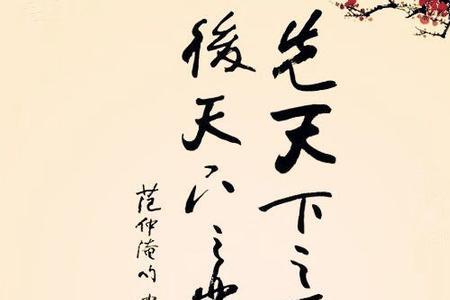 先天下之
後天下之
范仲淹句